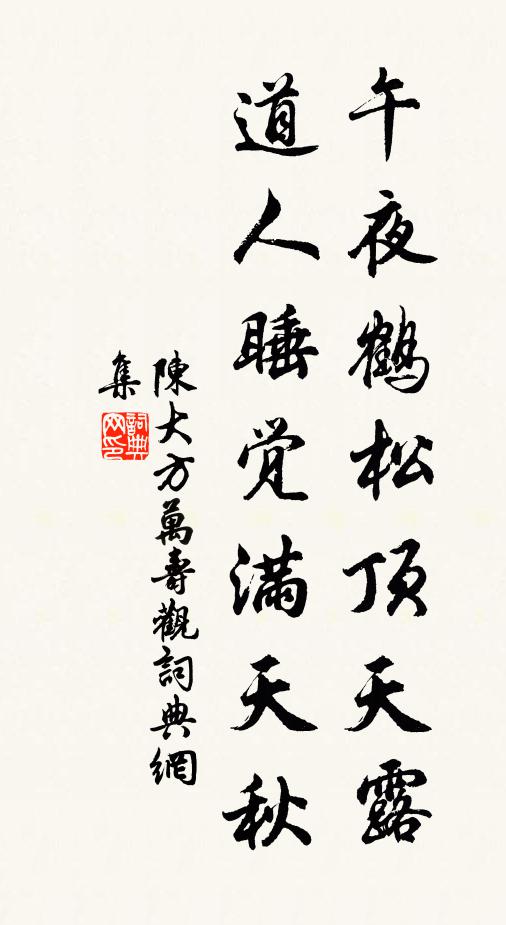 午夜鶴松頂天露
道人睡觉满天秋
陳大方萬壽觀詞典網
集
詞典
网印